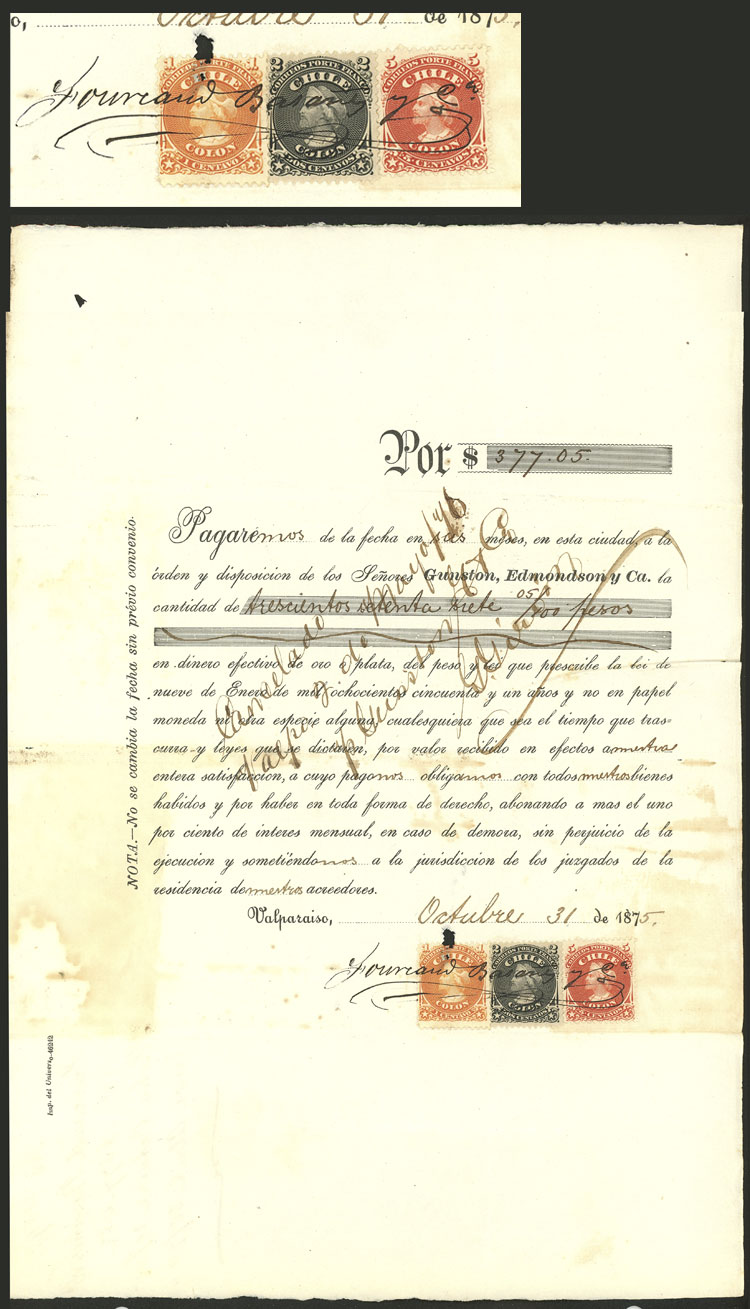 o, Octubre 31 de 1875.
1 CORREOS PORTE FRANCO 1
CHILE
COLON
1 CENTAVO
2 CORREOS PORTE FRANCO 2
CHILE
COLON
DOS CENTAVOS
5 CORREOS PORTE FRANCO 5
CHILE
COLON
5 CENTAVOS
y Ca.
Por $ 377.05.
Pagaremos de la fecha en seis meses, en esta ciudad, a la
órden y disposicion de los Señores Gunston, Edmondson y Ca. la
cantidad de trescientos setenta siete 05/100 pesos
en dinero efectivo de oro o plata, del peso y lei que prescribe la lei de
nueve de Enero de mil ochocientos cincuenta y un años y no en papel
moneda ni otra especie alguna, cualesquiera que sea el tiempo que tras-
curra y leyes que se dictaren, por valor recibido en efectos a nuestra
entera satisfaccion, a cuyo pago nos obligamos con todos nuestros bienes
habidos y por haber en toda forma de derecho, abonando a mas el uno
por ciento de interes mensual, en caso de demora, sin perjuicio de la
ejecucion y sometiéndonos a la jurisdiccion de los juzgados de la
residencia de nuestros acreedores.
Cancelado
Valpso de Mayo
p Gunston E y Ca
NOTA.—No se cambia la fecha sin prévio convenio.
Valparaiso, Octubre 31 de 1875.
1 CORREOS PORTE FRANCO 1
CHILE
COLON
1 CENTAVO
2 CORREOS PORTE FRANCO 2
CHILE
COLON
DOS CENTAVOS
5 CORREOS PORTE FRANCO 5
CHILE
COLON
5 CENTAVOS
y Ca.
Imp. del Universo-46242